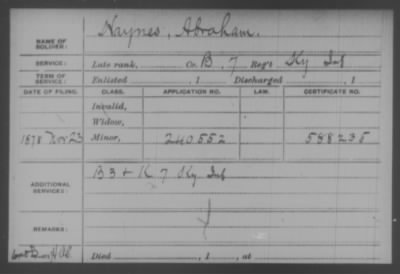 NAME OF SOLDIER: Haynes, Abraham.
SERVICE: Late rank, Co. B, 7 Reg't Ky Inf
TERM OF SERVICE: Enlisted , 1 Discharged , 1
DATE OF FILING. CLASS. APPLICATION NO. LAW. CERTIFICATE NO.
Invalid,
Widow,
1878 Nov 23 Minor, 240552 588235
ADDITIONAL SERVICES: B 3 + K 7 Ky Inf
REMARKS:
Died , 1 , at